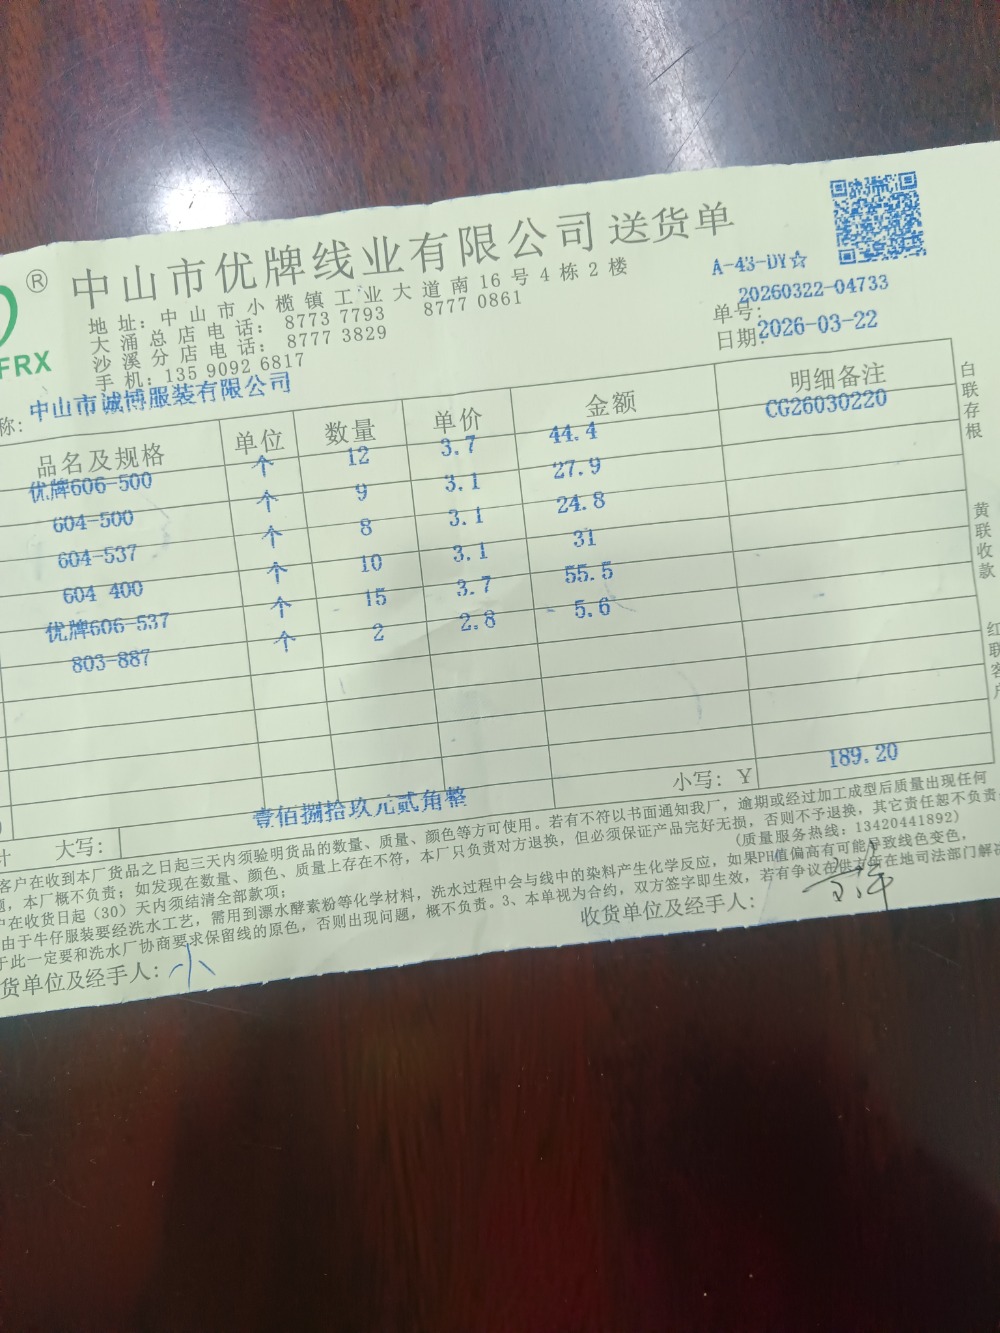 ®
FRX
中山市优牌线业有限公司 送货单
地址：中山市小榄镇工业大道南16号4栋2楼
大涌总店电话：8773 7793 8777 0861
沙溪分店电话：8777 3829
手机：135 9092 6817
A-43-DY☆
单号：20260322-04733
日期：2026-03-22
称：中山市诚博服装有限公司
品名及规格 单位 数量 单价 金额 明细备注
优牌606-500 个 12 3.7 44.4 CG26030220
604-500 个 9 3.1 27.9
604-537 个 8 3.1 24.8
604 400 个 10 3.1 31
优牌606-537 个 15 3.7 55.5
803-887 个 2 2.8 5.6
大写：壹佰捌拾玖元贰角整 小写：Y 189.20
客户在收到本厂货品之日起三天内须验明货品的数量、质量、颜色等方可使用。若有不符以书面通知我厂，逾期或经过加工成型后质量出现任何
题，本厂概不负责；如发现在数量、颜色、质量上存在不符，本厂只负责对方退换，但必须保证产品完好无损，否则不予退换，其它责任恕不负责。
户在收货日起（30）天内须结清全部款项； （质量服务热线：13420441892）
由于牛仔服装要经洗水工艺，需用到漂水酵素粉等化学材料，洗水过程中会与线中的染料产生化学反应，如果PH值偏高有可能导致线色变色，
于此一定要和洗水厂协商要求保留线的原色，否则出现问题，概不负责。3、本单视为合约，双方签字即生效，若有争议在供方所在地司法部门解决
货单位及经手人：小
收货单位及经手人：
白联存根
黄联收款
红联客户